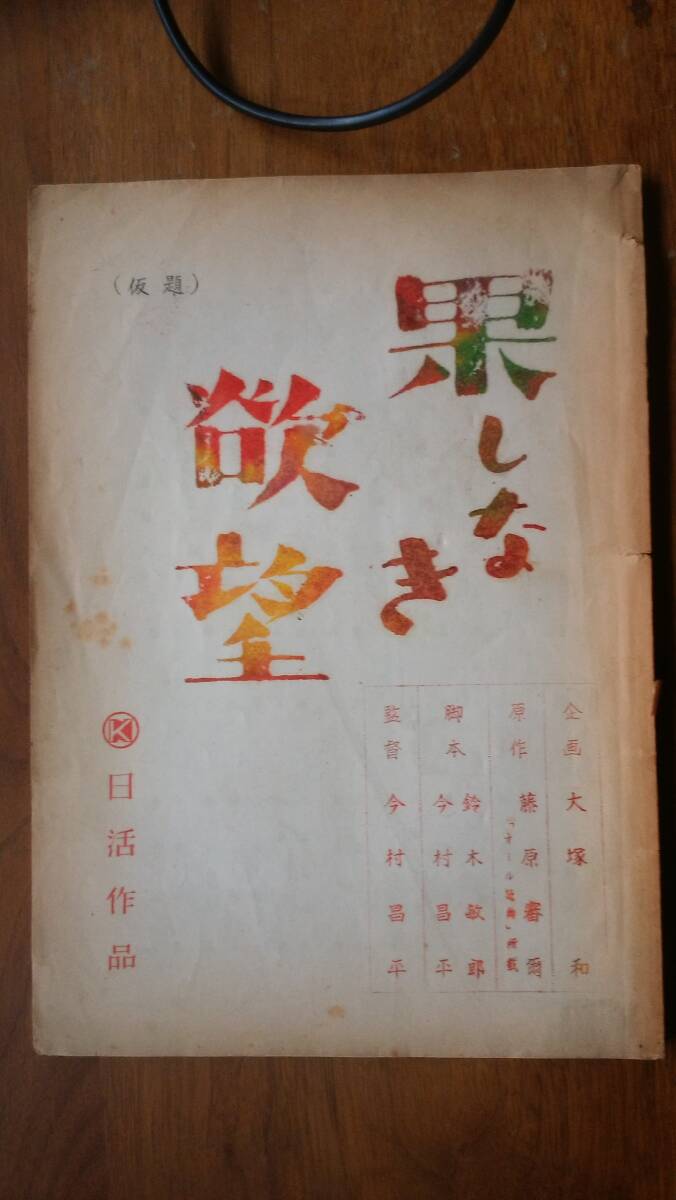 果しなき
欲望
（仮題）
企画 大塚 和
原作 藤原審爾
「オール読物」所載
脚本 鈴木敏郎
今村昌平
監督 今村昌平
K
日活作品